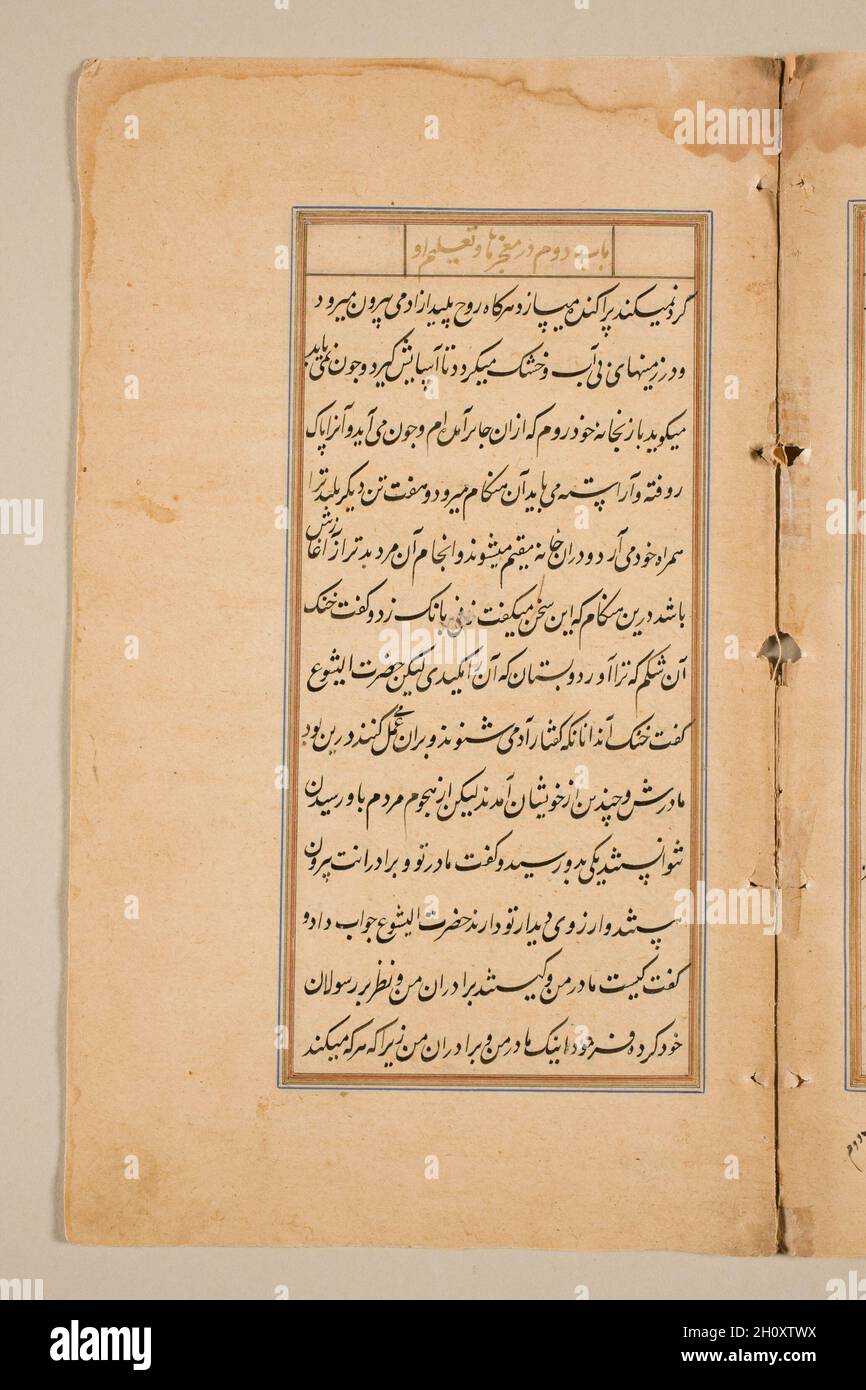 باب دوم در معجزها و تعلیم او
گرد نمیکند پراکنده میسازد هرکاه روح پلید از ادمی بیرون میرود
و در زمینهای بی آب و خشک میکردد تا آسایش کیرد و چون نمی یابد
میکوید باز بخانه خود روم که از ان جا برآمده ام و چون می آید و آنرا پاک
روفته و آراسته می یابد آن هنکام میرود و هفت تن دیکر پلیدتر را
همراه خود می آرد و در ان خانه مقیم میشوند و انجام آن مرد بدتر از آغازش
باشد درین هنکام که این سخن میکفت زنی بانک زد و کفت خنک
آن شکم که ترا آورد و پستان که آن را مکیدی لیکن حضرت ایشوع
کفت خنک آنانکه کفتار آدمی شنوند و بران عمل کنند درین بود
مادرش و چندین از خویشان آمدند لیکن از هجوم مردم باو رسیدن
نتوانستند یکی بدو رسید و کفت مادر تو و برادرانت بیرون
هستند و ارزوی دیدار تو دارند حضرت ایشوع جواب داد و
کفت کیست مادر من و کیستند برادران من و نظر بر رسولان
خود کرده فرمود اینک مادر من و برادران من زیرا که هر که میکند
alamy
Image ID: 2H0XTWX
www.alamy.com